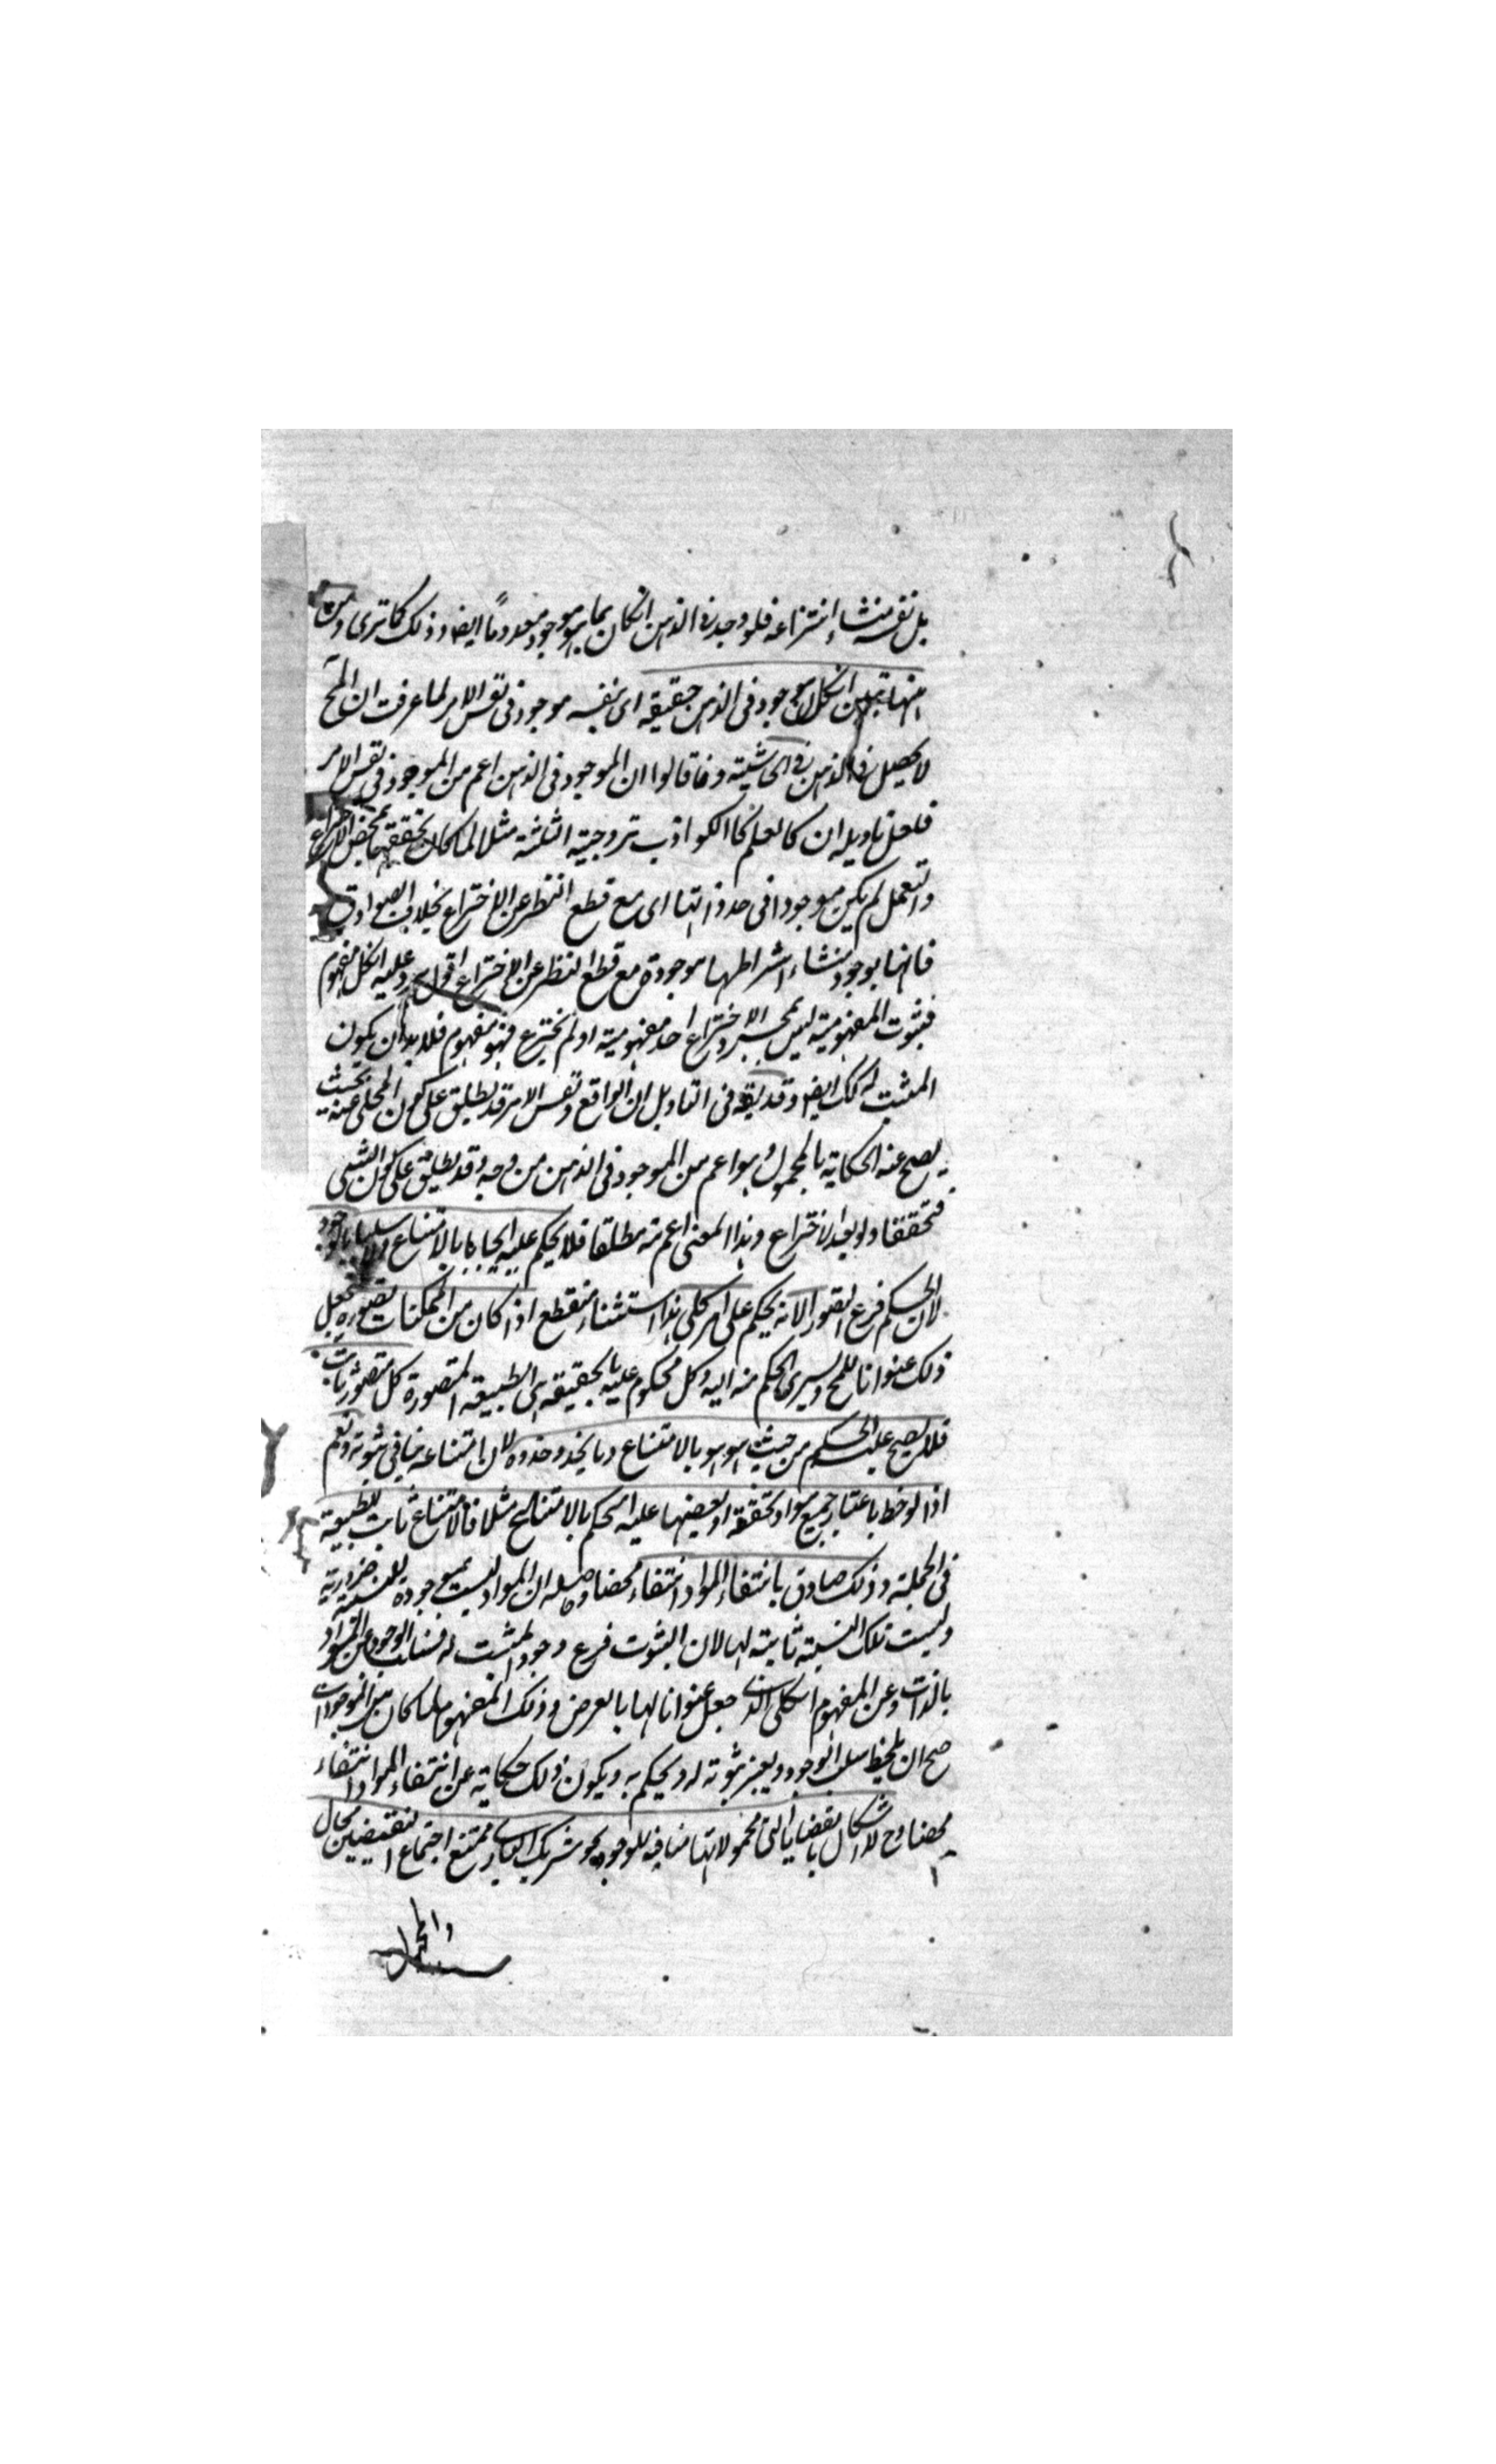 بل نفس منشاء انتزاعه فلو وجد فى الذهن لكان بما هو موجود معدوما ايضا وذلك كما ترى ومن
منها تبين ان كل موجود فى الذهن حقيقة اى بنفسه موجود فى نفس الامر لما عرفت ان المح
لا يحصل فى الذهن فى الحاشية وما قالوا ان الموجود فى الذهن اعم من الموجود فى نفس الامر
فلعل تاويله ان كالعلم كالكواذب كزوجية الثلثة مثلا لما كان تحققها بمحض الاختراع
والتعمل لم يكن موجودا فى حد ذاتها اى مع قطع النظر عن الاختراع بخلاف الصوادق
فانها بوجود منشاء انتزاعها موجودة مع قطع النظر عن الاختراع اقول يرد عليه ان كل مفهوم
فثبوت المفهومية ليس بمجرد الاختراع احد مفهومية او لم يخترع فهو مفهوم فلا بد ان يكون
المثبت له كك ايضا وقد يقه فى التاويل ان الواقع ونفس الامر قد يطلق على كون المحكى عنه بحيث
يصح عنه الحكاية بالمحمول وهو اعم من الموجود فى الذهن من وجه وقد يطلق على كون الشىء
متحققا ولو بعد الاختراع وهذا المعنى اعم منه مطلقا فلا يحكم عليه ايجابا بالامتناع او سلبا بالوجود
لان الحكم فرع التصور الا انه يحكم على امر كلى هذا استثناء منقطع اذا كان من الممكنات تصوره يجعل
ذلك عنوانا للمح ويسرى الحكم منه اليه وكل محكوم عليه بالحقيقة هى الطبيعة المتصورة كل متصور ثابت
فلا يصح عليه الحكم من حيث هو هو بالامتناع وما يحذو حذوه لان امتناعه ينافى ثبوته نعم
اذا لوحظ باعتبار جميع مواد تحققه او بعضها عليه الحكم بالامتناع مثلا فالامتناع ثابت للطبيعة
فى الجملة وذلك صادق بانتفاء المواد انتفاء محضا وحاصله ان المواد ليست بموجودة للنسبة ضرورية
وليست تلك النسبة ثابتة لها لان الثبوت فرع وجود المثبت له فسلب الوجود عن المواد
بالذات وعن المفهوم الكلى الذى جعل عنوانا لها بالعرض وذلك المفهوم لما كان من الموجودات
صح ان يلحظ سلب الوجود ويعتبر ثبوته له ويحكم به ويكون ذلك حكاية عن انتفاء المواد انتفاء
محضا وح لا اشكال بالقضايا التى محمولاتها منافية للوجود نحو شريك البارى ممتنع اجتماع النقيضين محال